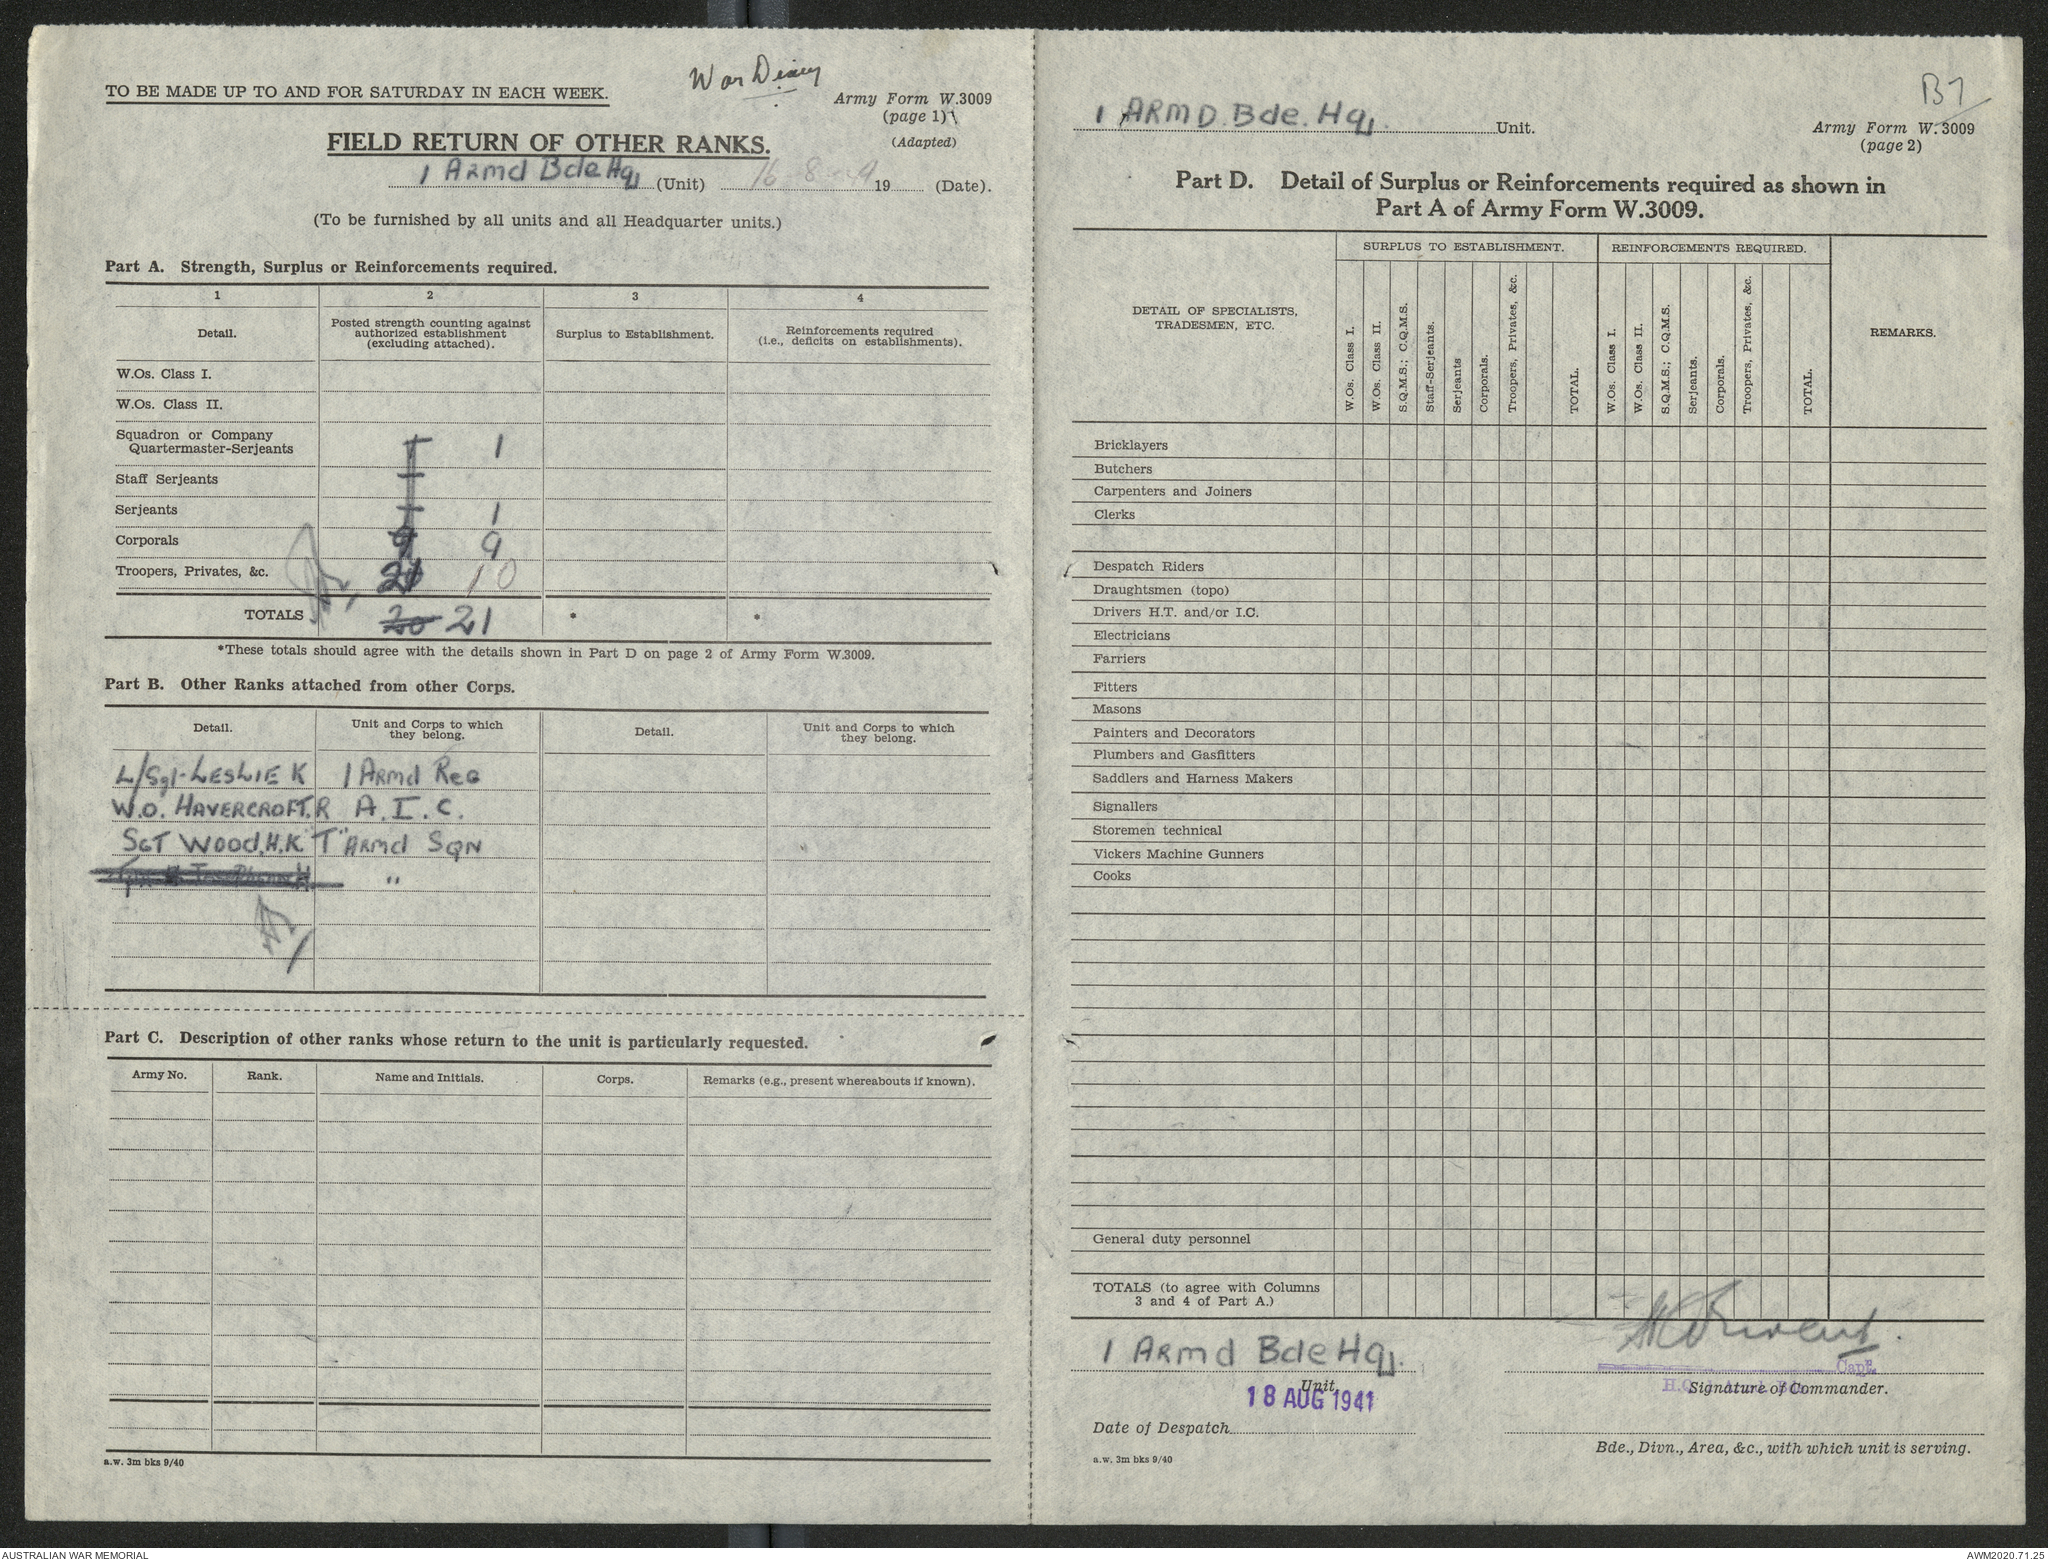 War Diary
TO BE MADE UP TO AND FOR SATURDAY IN EACH WEEK.
Army Form W.3009
(page 1)
(Adapted)
FIELD RETURN OF OTHER RANKS.
1 Armd Bde Hq (Unit) 16 8 19 (Date).
(To be furnished by all units and all Headquarter units.)
Part A. Strength, Surplus or Reinforcements required.
1 2 3 4
Detail.
Posted strength counting against authorized establishment (excluding attached).
Surplus to Establishment.
Reinforcements required (i.e., deficits on establishments).
W.Os. Class I.
W.Os. Class II.
Squadron or Company
Quartermaster-Serjeants 1
Staff Serjeants
Serjeants 1
Corporals 9 9
Troopers, Privates, &c. 10
TOTALS 20 21 * *
*These totals should agree with the details shown in Part D on page 2 of Army Form W.3009.
Part B. Other Ranks attached from other Corps.
Detail.
Unit and Corps to which they belong.
Detail.
Unit and Corps to which they belong.
L/Sgt. LESLIE K 1 Armd Reg
W.O. HAVERCROFT. R A. I. C.
SGT WOOD. H.K. "T" ARMd SQN
"
Part C. Description of other ranks whose return to the unit is particularly requested.
Army No. Rank. Name and Initials. Corps. Remarks (e.g., present whereabouts if known).
a.w. 3m bks 9/40
B7
1 ARMD. Bde. Hq. Unit.
Army Form W.3009
(page 2)
Part D. Detail of Surplus or Reinforcements required as shown in
Part A of Army Form W.3009.
DETAIL OF SPECIALISTS,
TRADESMEN, ETC.
SURPLUS TO ESTABLISHMENT.
W.Os. Class I.
W.Os. Class II.
S.Q.M.S.; C.Q.M.S.
Staff-Serjeants.
Serjeants
Corporals.
Troopers, Privates, &c.
TOTAL.
REINFORCEMENTS REQUIRED.
W.Os. Class I.
W.Os. Class II.
S.Q.M.S.; C.Q.M.S.
Serjeants.
Corporals.
Troopers, Privates, &c.
TOTAL.
REMARKS.
Bricklayers
Butchers
Carpenters and Joiners
Clerks
Despatch Riders
Draughtsmen (topo)
Drivers H.T. and/or I.C.
Electricians
Farriers
Fitters
Masons
Painters and Decorators
Plumbers and Gasfitters
Saddlers and Harness Makers
Signallers
Storemen technical
Vickers Machine Gunners
Cooks
General duty personnel
TOTALS (to agree with Columns
3 and 4 of Part A.)
1 Armd Bde Hq.
Unit
18 AUG 1941
Date of Despatch
a.w. 3m bks 9/40
Capt.
Signature of Commander.
Bde., Divn., Area, &c., with which unit is serving.
AUSTRALIAN WAR MEMORIAL
AWM2020.71.25